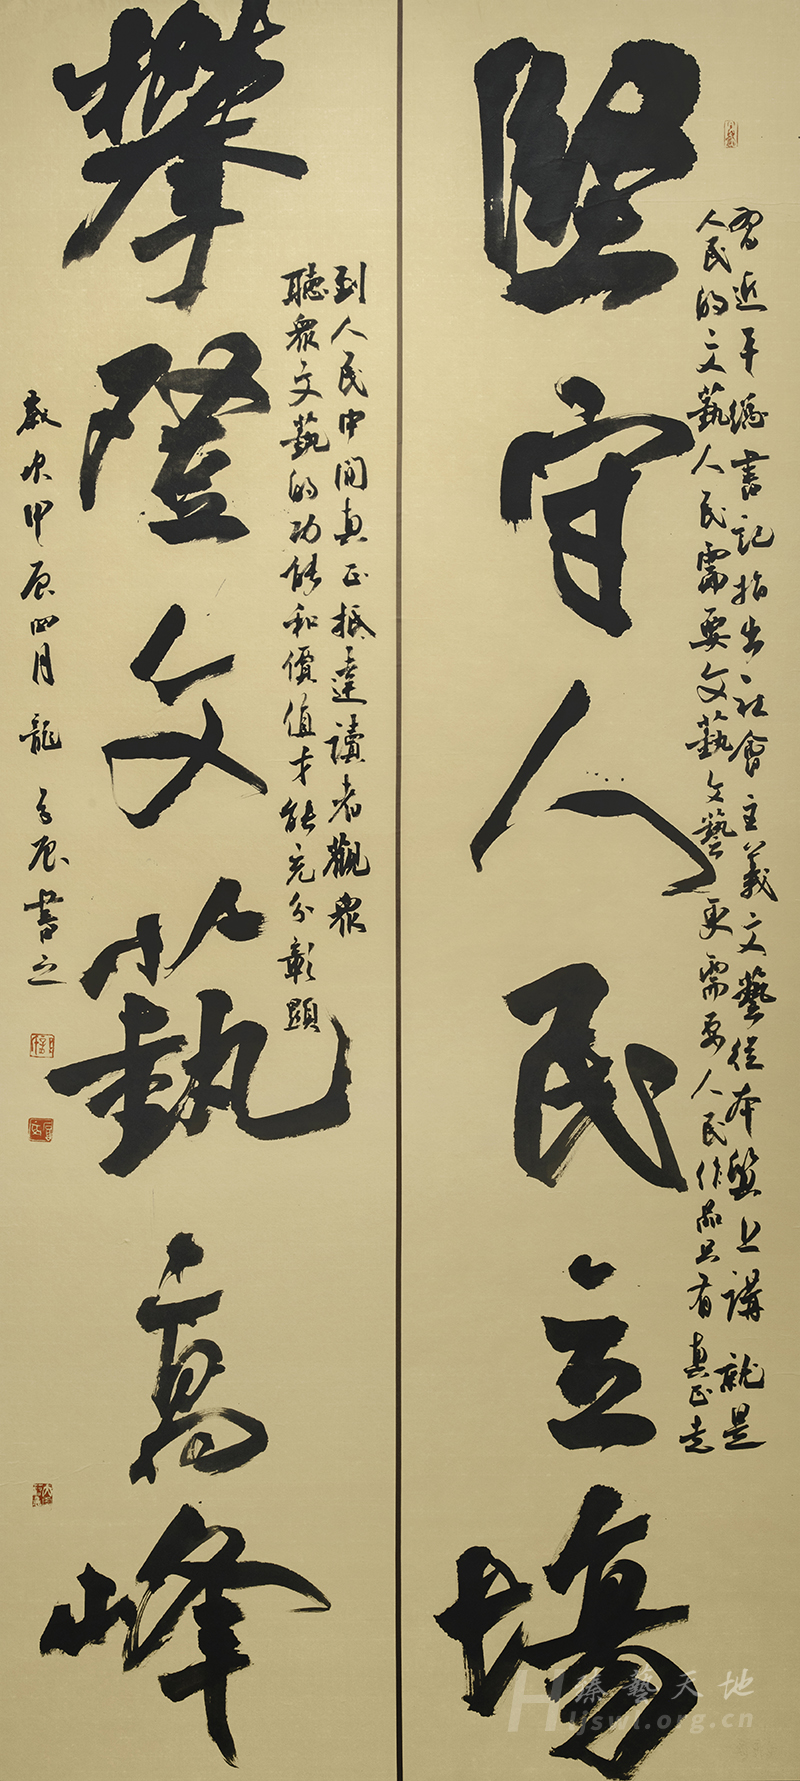 堅守人民立場
習近平總書記指出社會主義文藝從本質上講就是
人民的文藝人民需要文藝文藝更需要人民作品只有真正走
攀登文藝高峰
到人民中間真正抵達讀者觀眾
聽眾文藝的功能和價值才能充分彰顯
歲次甲辰四月龍
書之
臻藝天地
hljswl.org.cn